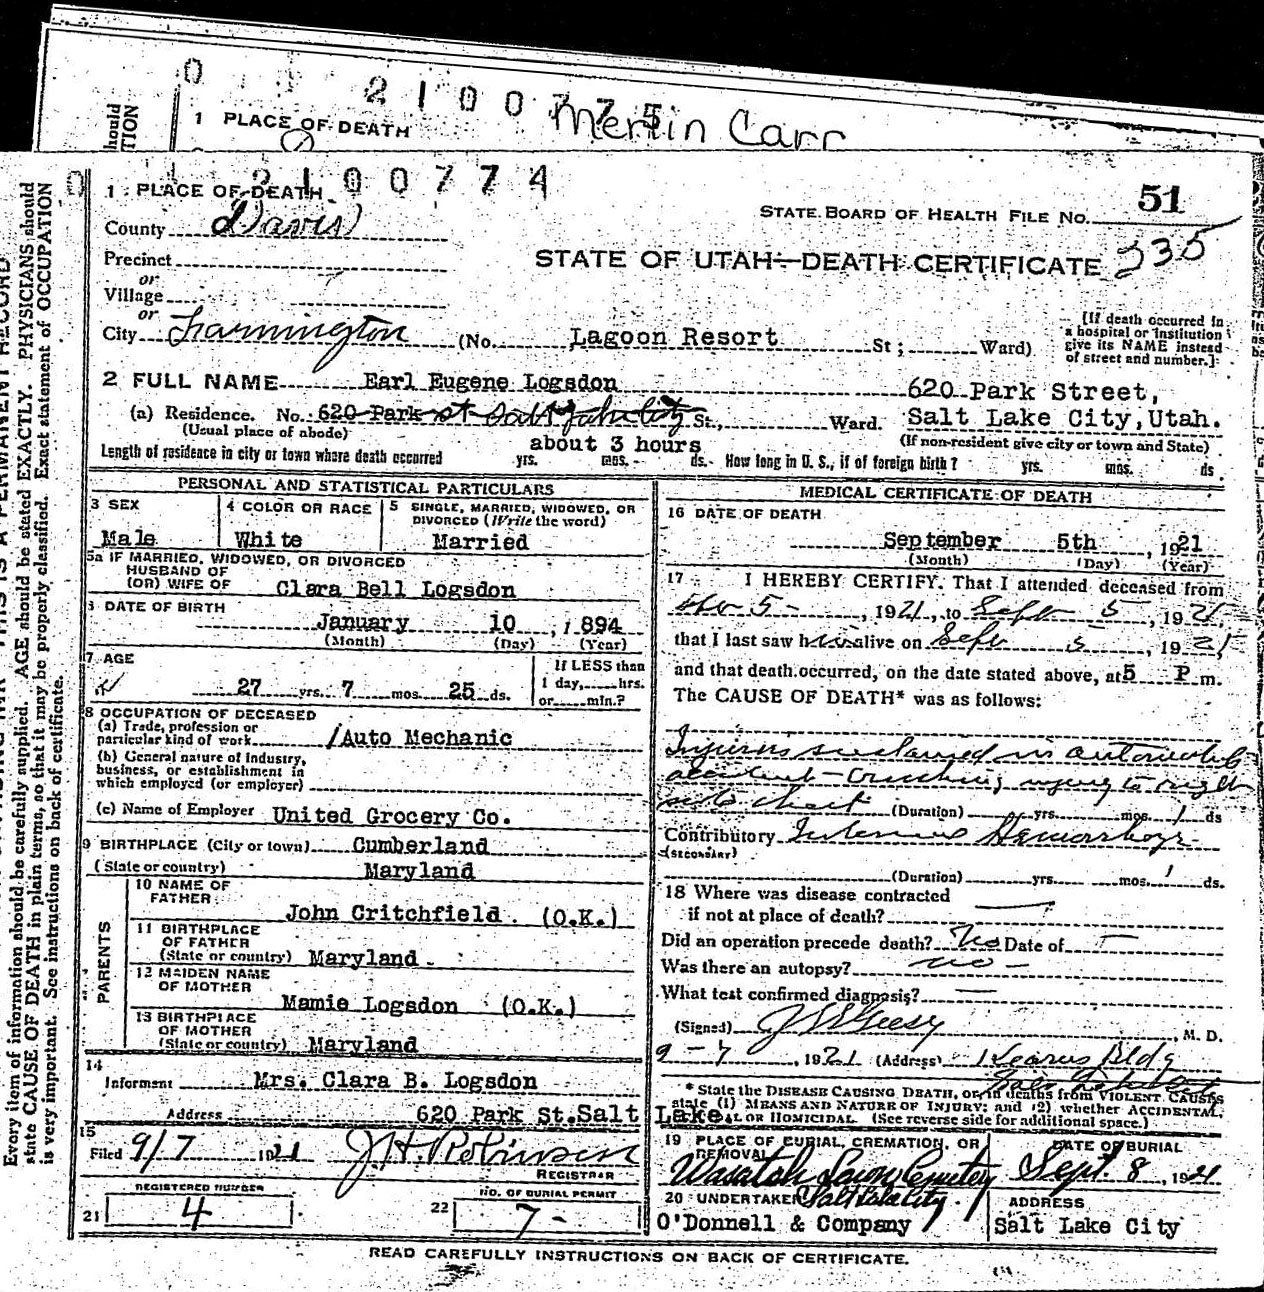 0 2100775
hould
TION
1 PLACE OF DEATH
Merlin Carr
0 2100774
1 PLACE OF DEATH
51
STATE BOARD OF HEALTH FILE No.
County Davis
235
Precinct
STATE OF UTAH—DEATH CERTIFICATE
or
Village
or
City Farmington (No. Lagoon Resort St; Ward)
(If death occurred in
a hospital or institution
give its NAME instead
of street and number.)
2 FULL NAME Earl Eugene Logsdon
620 Park Street,
(a) Residence. No. 620 Park st Salt Lake City St., Ward. Salt Lake City, Utah.
(Usual place of abode) (If non-resident give city or town and State)
about 3 hours
Length of residence in city or town where death occurred yrs. mos. ds. How long in U. S., if of foreign birth? yrs. mos. ds
PERSONAL AND STATISTICAL PARTICULARS
3 SEX
Male
4 COLOR OR RACE
White
5 SINGLE, MARRIED, WIDOWED, OR
DIVORCED (Write the word)
Married
5a IF MARRIED, WIDOWED, OR DIVORCED
HUSBAND OF
(OR) WIFE OF Clara Bell Logsdon
6 DATE OF BIRTH
January 10, 1894
(Month) (Day) (Year)
7 AGE
27 yrs. 7 mos. 25 ds.
If LESS than
1 day, hrs.
or min.?
8 OCCUPATION OF DECEASED
(a) Trade, profession or
particular kind of work Auto Mechanic
(b) General nature of industry,
business, or establishment in
which employed (or employer)
(c) Name of Employer United Grocery Co.
9 BIRTHPLACE (City or town) Cumberland
(State or country) Maryland
PARENTS
10 NAME OF
FATHER
John Critchfield (O.K.)
11 BIRTHPLACE
OF FATHER
(State or country) Maryland
12 MAIDEN NAME
OF MOTHER
Mamie Logsdon (O.K.)
13 BIRTHPLACE
OF MOTHER
(State or country) Maryland
14
Informant Mrs. Clara B. Logsdon
Address 620 Park St. Salt Lake
15
Filed 9/7 1921 J H Robinson
REGISTRAR
REGISTERED NUMBER
21 4
NO. OF BURIAL PERMIT
22 7-
MEDICAL CERTIFICATE OF DEATH
16 DATE OF DEATH
September 5th, 1921
(Month) (Day) (Year)
17 I HEREBY CERTIFY. That I attended deceased from
5 - , 1921, to Sept 5, 1921,
that I last saw him alive on Sept 5, 1921,
and that death occurred, on the date stated above, at 5 P m.
The CAUSE OF DEATH* was as follows:
Injuries sustained in automobile
accident - Crushing injury to right
side chest (Duration) yrs. mos. 1 ds
Contributory Hemorrhage
(SECONDARY)
(Duration) yrs. mos. 1 ds.
18 Where was disease contracted
if not at place of death?
Did an operation precede death? No Date of
Was there an autopsy? no
What test confirmed diagnosis?
(Signed) M. D.
9-7, 1921 (Address) Kearns Bldg
Salt Lake City
* State the DISEASE CAUSING DEATH, or, in deaths from VIOLENT CAUSES
state (1) MEANS AND NATURE OF INJURY; and (2) whether ACCIDENTAL,
AL OR HOMICIDAL. (See reverse side for additional space.)
19 PLACE OF BURIAL, CREMATION, OR
REMOVAL
Wasatch Lawn Cemetery
Salt Lake City
DATE OF BURIAL
Sept 8, 1921
20 UNDERTAKER
O'Donnell & Company
ADDRESS
Salt Lake City
READ CAREFULLY INSTRUCTIONS ON BACK OF CERTIFICATE.
THIS IS A PERMANENT RECORD
Every item of information should be carefully supplied. AGE should be stated EXACTLY. PHYSICIANS should
state CAUSE OF DEATH in plain terms, so that it may be properly classified. Exact statement of OCCUPATION
is very important. See instructions on back of certificate.